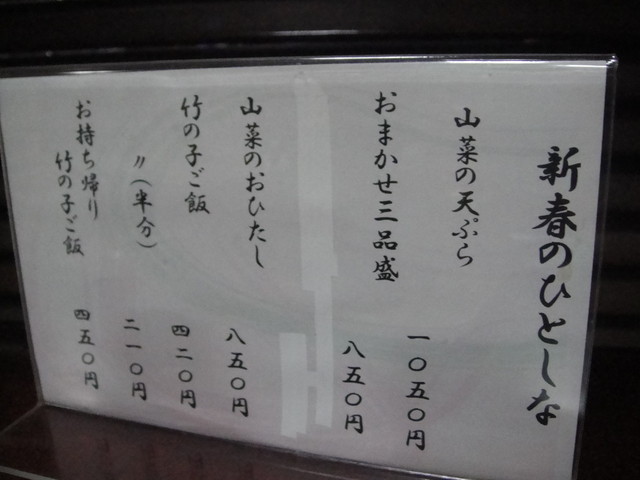 新春のひとしな
山菜の天ぷら 一〇五〇円
おまかせ三品盛 八五〇円
山菜のおひたし 八五〇円
竹の子ご飯 四二〇円
〃(半分) 二一〇円
お持ち帰り
竹の子ご飯 四五〇円